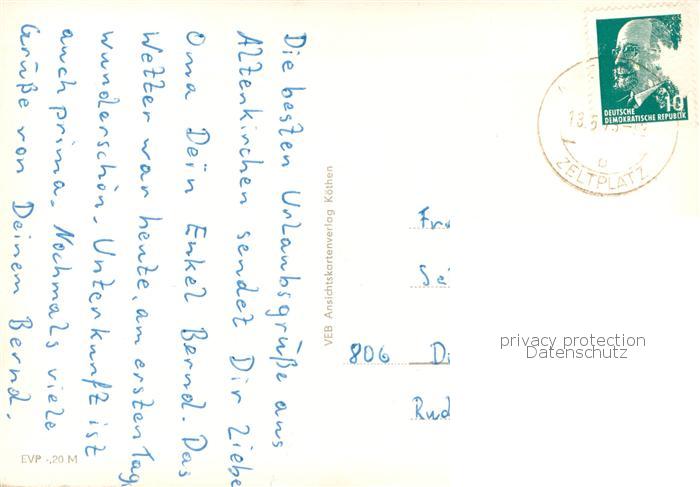 Die besten Urlaubsgrüße aus
Altenkirchen sendet Dir liebe
Oma Dein Enkel Bernd. Das
Wetter war heute, am ersten Tag,
wunderschön. Unterkunft ist
auch prima. Nochmals viele
Grüße von Deinem Bernd.
EVP -,20 M
VEB Ansichtskartenverlag Köthen
10
DEUTSCHE
DEMOKRATISCHE REPUBLIK
ZELTPLATZ
806
privacy protection
Datenschutz